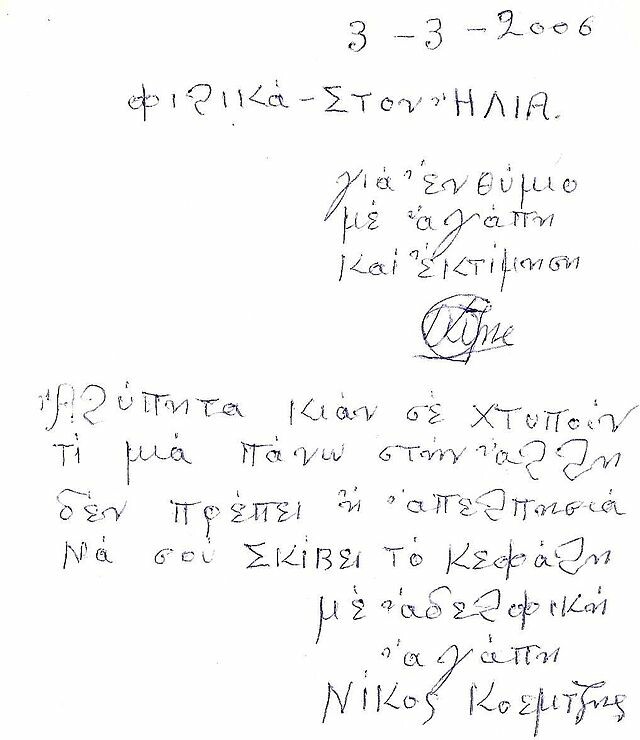 3 - 3 - 2006
φιλικά - ΣΤον ἨΛΙΑ.
γιά ἐνθύμιο
μέ ἀγάπη
καί ἐκτίμηση
Ἀλύπητα κιάν σέ χτυποίν
τί μιά πάνω στήν ἄλλη
δέν πρέπει ἡ ἀπελπησιά
Νά σού ΣΚίΒει τό κεφάλη
μέ ἀδελφική
ἀγάπη
Νίκος Κοεμτζής